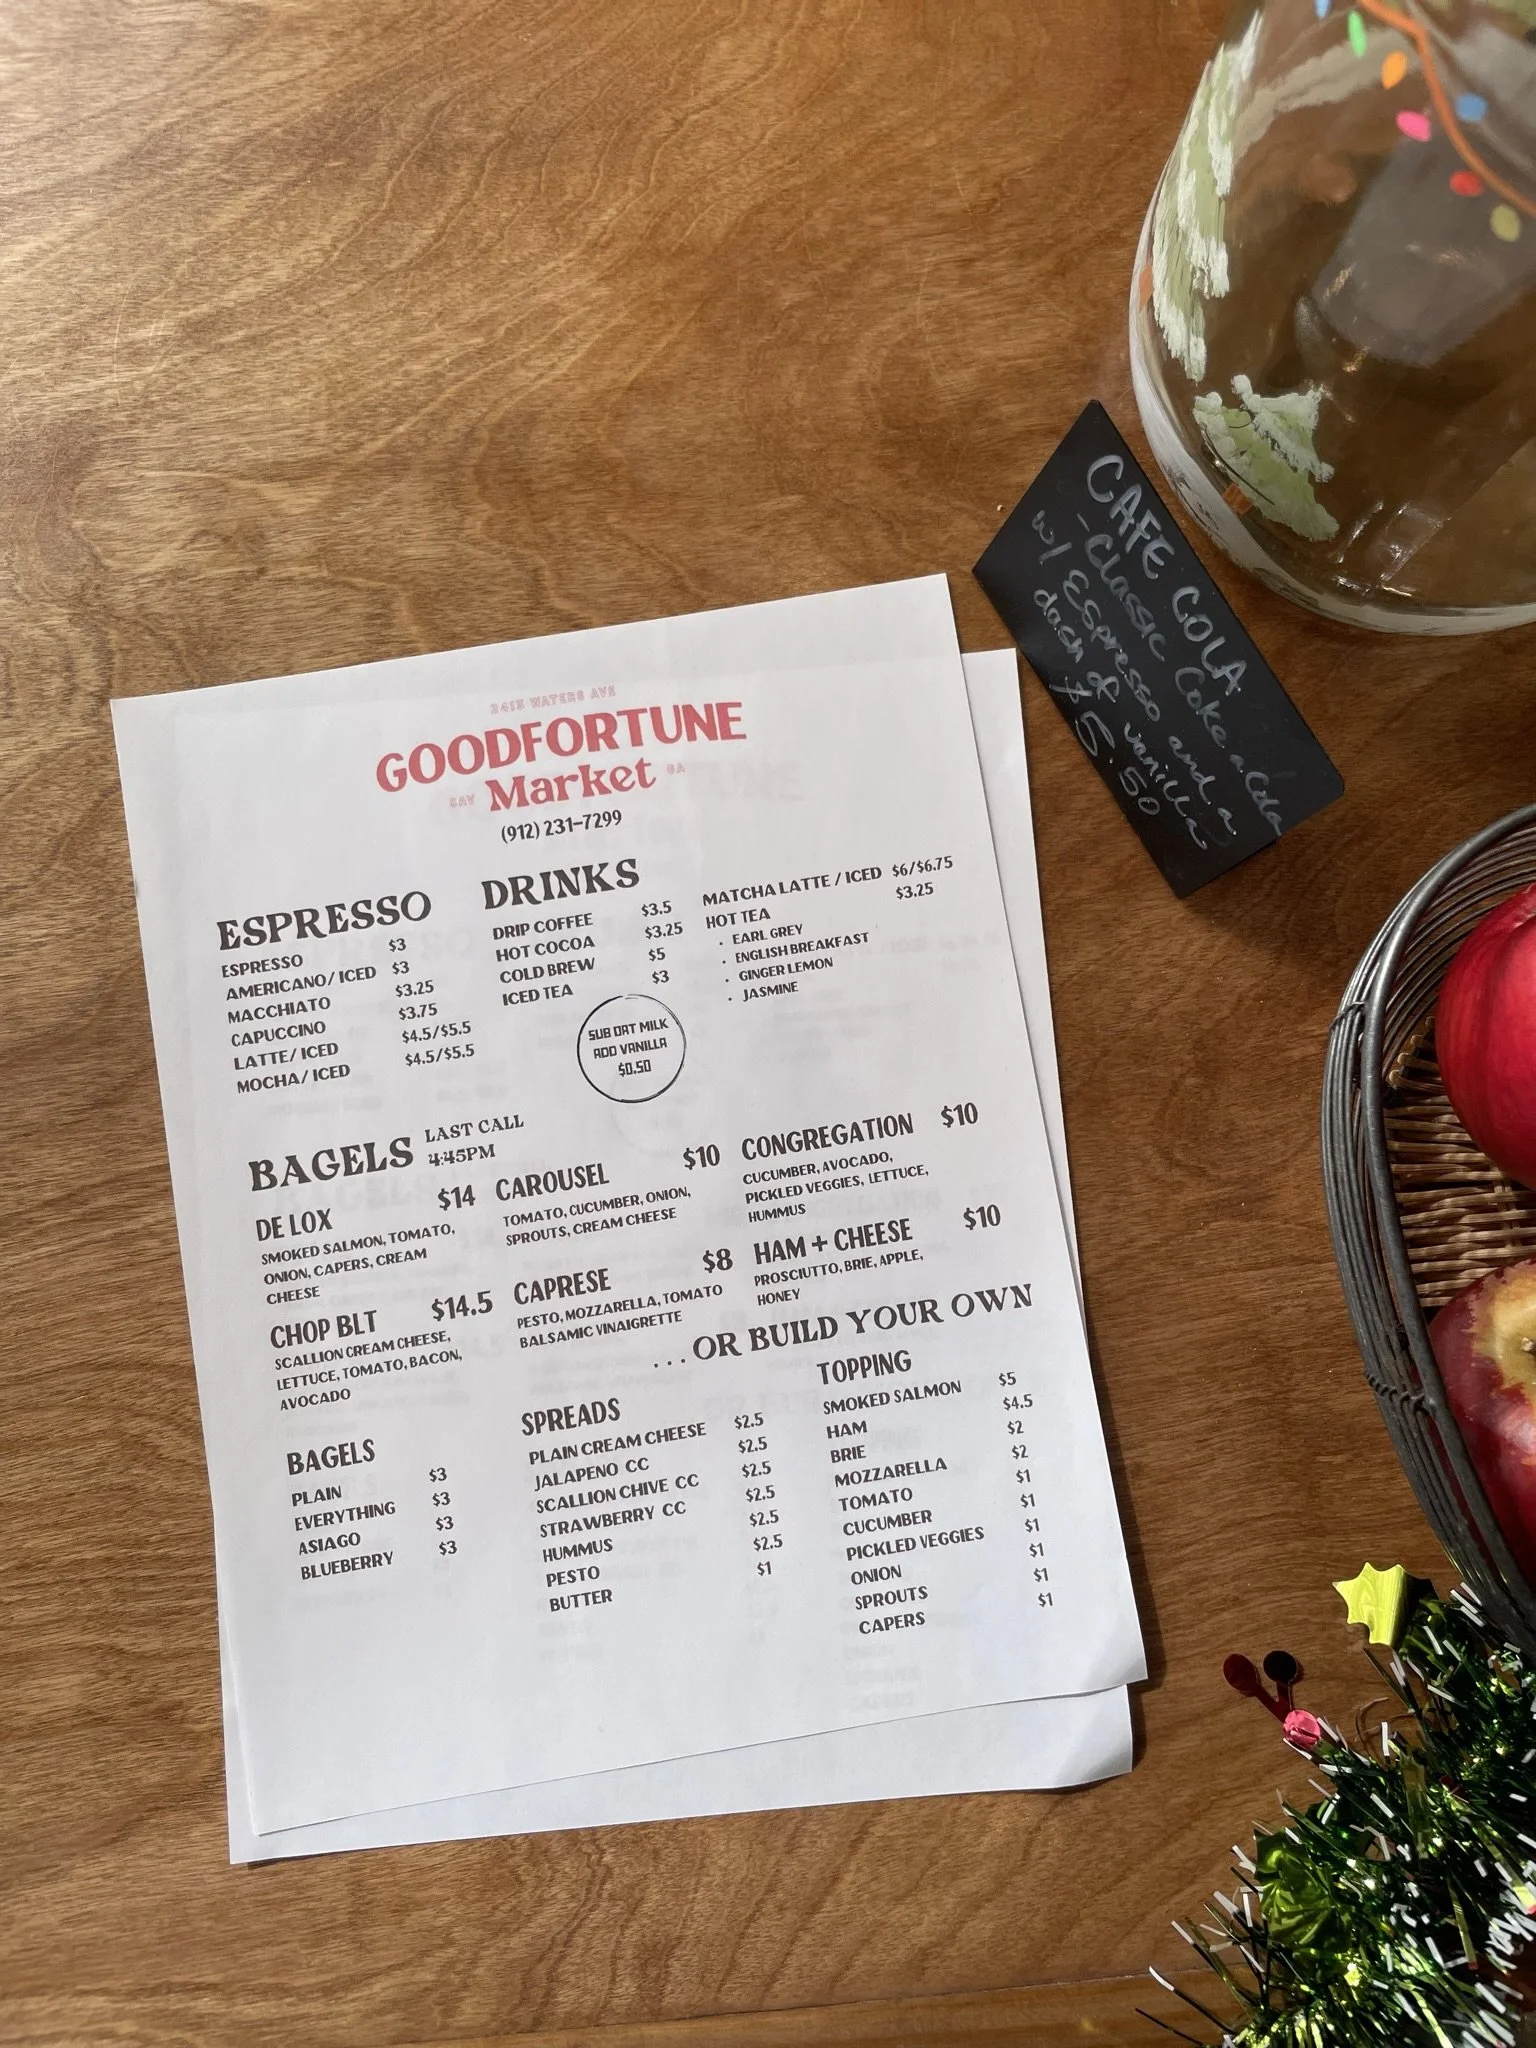 2415 WATERS AVE
GOODFORTUNE
SAV Market GA
(912) 231-7299
ESPRESSO
ESPRESSO $3
AMERICANO/ICED $3
MACCHIATO $3.25
CAPUCCINO $3.75
LATTE/ ICED $4.5/$5.5
MOCHA/ ICED $4.5/$5.5
DRINKS
DRIP COFFEE $3.5
HOT COCOA $3.25
COLD BREW $5
ICED TEA $3
MATCHA LATTE / ICED $6/$6.75
HOT TEA $3.25
· EARL GREY
· ENGLISH BREAKFAST
· GINGER LEMON
· JASMINE
SUB OAT MILK
ADD VANILLA
$0.50
BAGELS
LAST CALL
4:45PM
DE LOX $14
SMOKED SALMON, TOMATO,
ONION, CAPERS, CREAM
CHEESE
CHOP BLT $14.5
SCALLION CREAM CHEESE,
LETTUCE, TOMATO, BACON,
AVOCADO
CAROUSEL $10
TOMATO, CUCUMBER, ONION,
SPROUTS, CREAM CHEESE
CAPRESE $8
PESTO, MOZZARELLA, TOMATO
BALSAMIC VINAIGRETTE
CONGREGATION $10
CUCUMBER, AVOCADO,
PICKLED VEGGIES, LETTUCE,
HUMMUS
HAM + CHEESE $10
PROSCIUTTO, BRIE, APPLE,
HONEY
...OR BUILD YOUR OWN
BAGELS
PLAIN $3
EVERYTHING $3
ASIAGO $3
BLUEBERRY $3
SPREADS
PLAIN CREAM CHEESE $2.5
JALAPENO CC $2.5
SCALLION CHIVE CC $2.5
STRAWBERRY CC $2.5
HUMMUS $2.5
PESTO $2.5
BUTTER $1
TOPPING
SMOKED SALMON $5
HAM $4.5
BRIE $2
MOZZARELLA $2
TOMATO $1
CUCUMBER $1
PICKLED VEGGIES $1
ONION $1
SPROUTS $1
CAPERS $1
CAFE COLA
-Classic Coke a Cola
w/ Espresso and a
dash of vanilla
$5.50